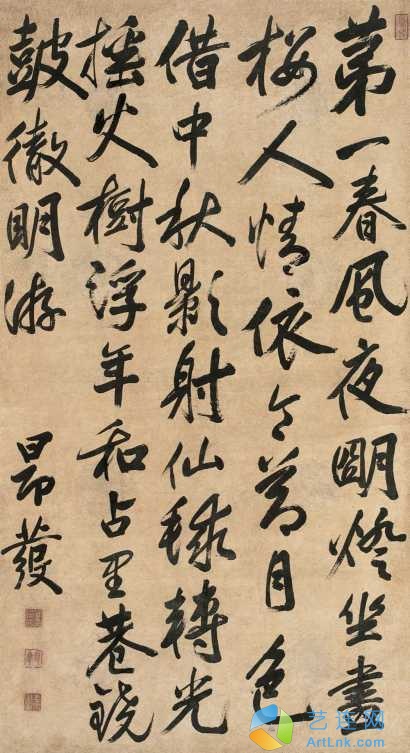 苐一春風夜開燈坐畫
樓人情依令節月色
借中秋影射仙毬轉光
搖火樹浮年和占里巷鐃
鼓徹明游
昂發
艺连网
ArtLnk.com